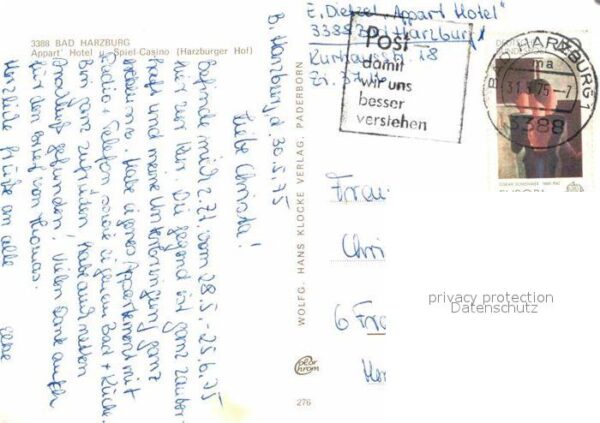 3388 BAD HARZBURG
Appart' Hotel u. Spiel-Casino (Harzburger Hof)
B. Harzburg, d. 30.5.75
Liebe Christa!
Befinde mich z. Zt. vom 28.5.-25.6.75
hier zur Kur. Die Gegend ist ganz zauber-
haft und meine Unterbringung ganz
Habe eigenes Appartement mit
Radio + Telefon sowie eigenem Bad + Küche.
Bin ganz zufrieden, habe auch netten
Anschluß gefunden. Vielen Dank auch
für den Brief von Thomas.
Herzliche Grüße an alle
WOLFG. HANS KLOCKE VERLAG, PADERBORN
276
E. Dietzel, "Appart Hotel"
3388 Bad Harzburg 1
Kurhausstr. 18
Post
damit
wir uns
besser
verstehen
HARZBURG 1
ma
31.5.75-7
3388
DEUTSCHE
BUNDESPOST
EUROPA
Frau
Chri
6 Fra
privacy protection
Datenschutz